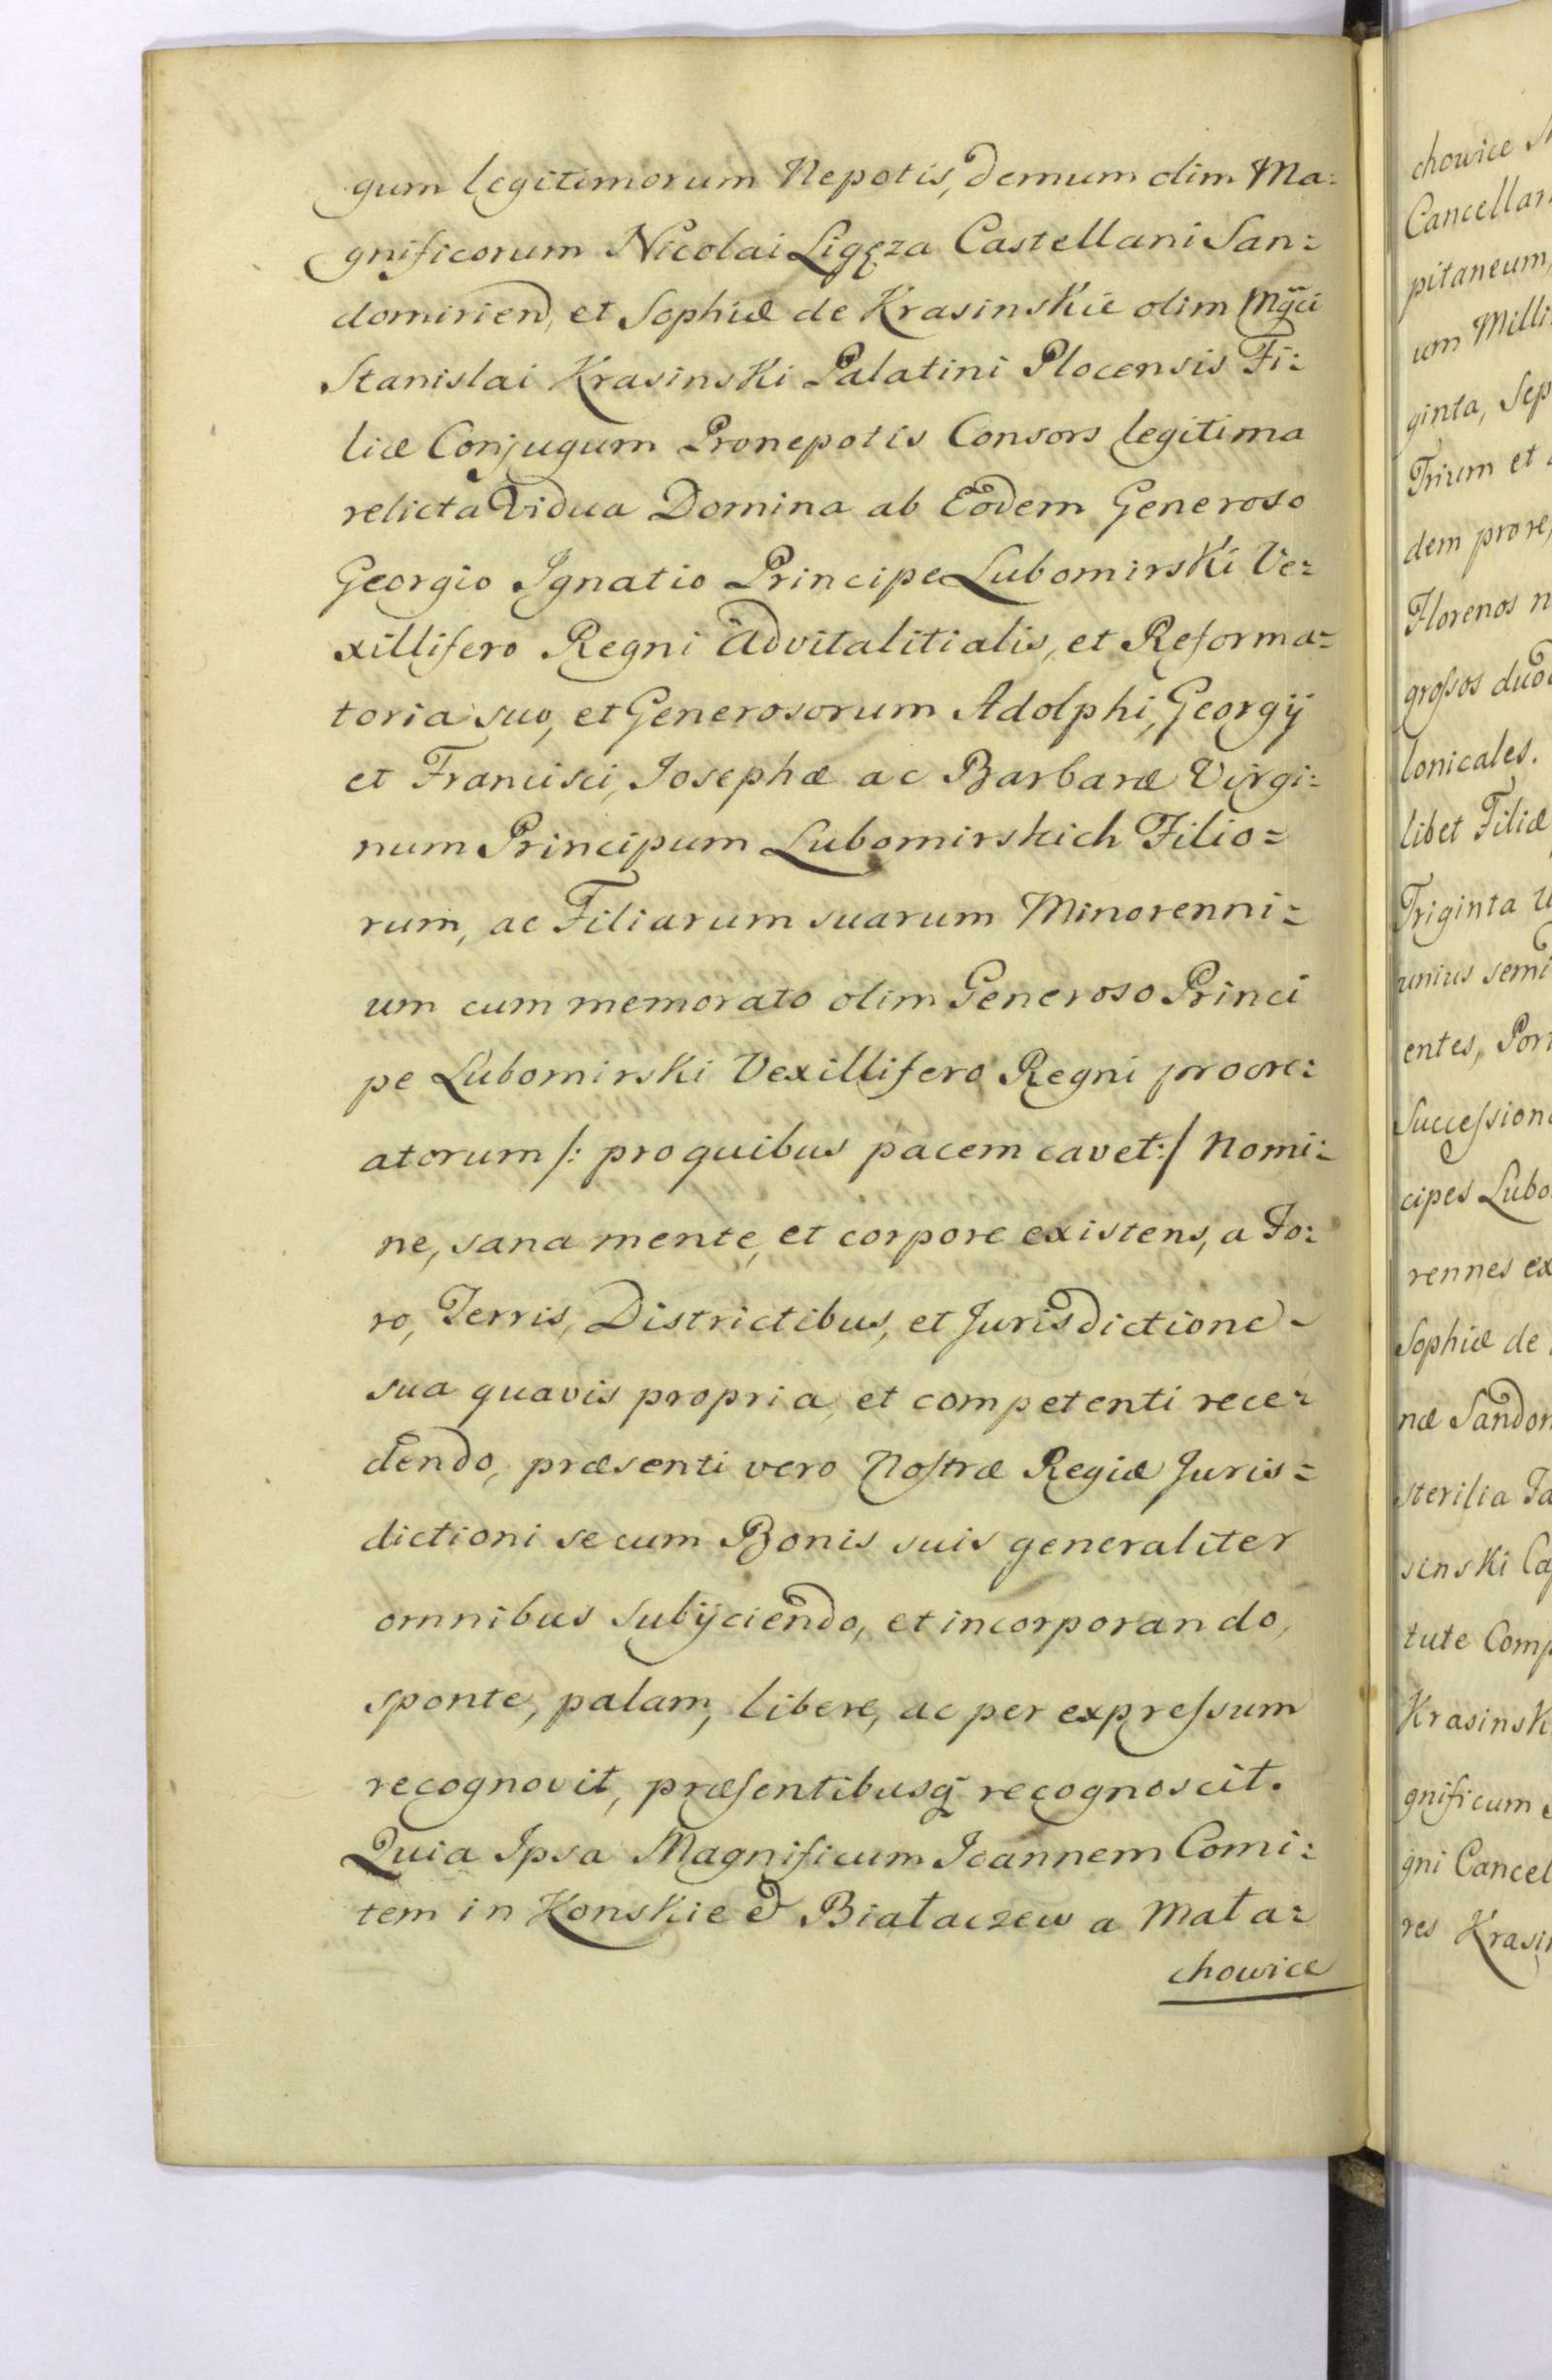 gum legitimorum Nepotis, demum olim Ma:
gnificorum Nicolai Ligęza Castellani San=
domirien, et Sophiæ de Krasinskie olim Mgci
Stanislai Krasinski Palatini Plocensis Fi:
liæ Conjugum Pronepotis Consors legitima
relicta Vidua Domina ab Eodem Generoso
Georgio Ignatio Principe Lubomirski Ve=
xillifero Regni Advitalitialis, et Reforma=
toria suo, et Generosorum Adolphi, Georgÿ
et Francisci, Josephæ ac Barbaræ Virgi=
num Principum Lubomirskich Filio=
rum, ac Filiarum suarum Minorenni=
um cum memorato olim Generoso Princi
pe Lubomirski Vexillifero Regni procre:
atorum /: pro quibus pacem cavet :/ Nomi=
ne, sana mente, et corpore existens, a Fo:
ro, Terris, Districtibus, et Jurisdictione
sua quavis propria, et competenti rece=
dendo, præsenti vero Nostræ Regiæ Juris=
dictioni se cum Bonis suis generaliter
omnibus subÿciendo, et incorporando,
sponte, palam, libere, ac per expressum
recognovit, præsentibusq̃ recognoscit.
Quia Ipsa Magnificum Joannem Comi:
tem in Konskie & Białaczew a Mała=
chowice
chowice
Cancellar
pitaneum,
um Milli
ginta, Sep
Trium et
dem pro re,
Florenos n
grossos duo
lonicales.
libet Filiæ
Triginta
unius semi
entes, Por
Succession
cipes Lubo
rennes ex
Sophiæ de
næ Sandom
sterilia Fa
sinski Ca
tute Comp
Krasinsk
gnificum
gni Cancel
res Krasin